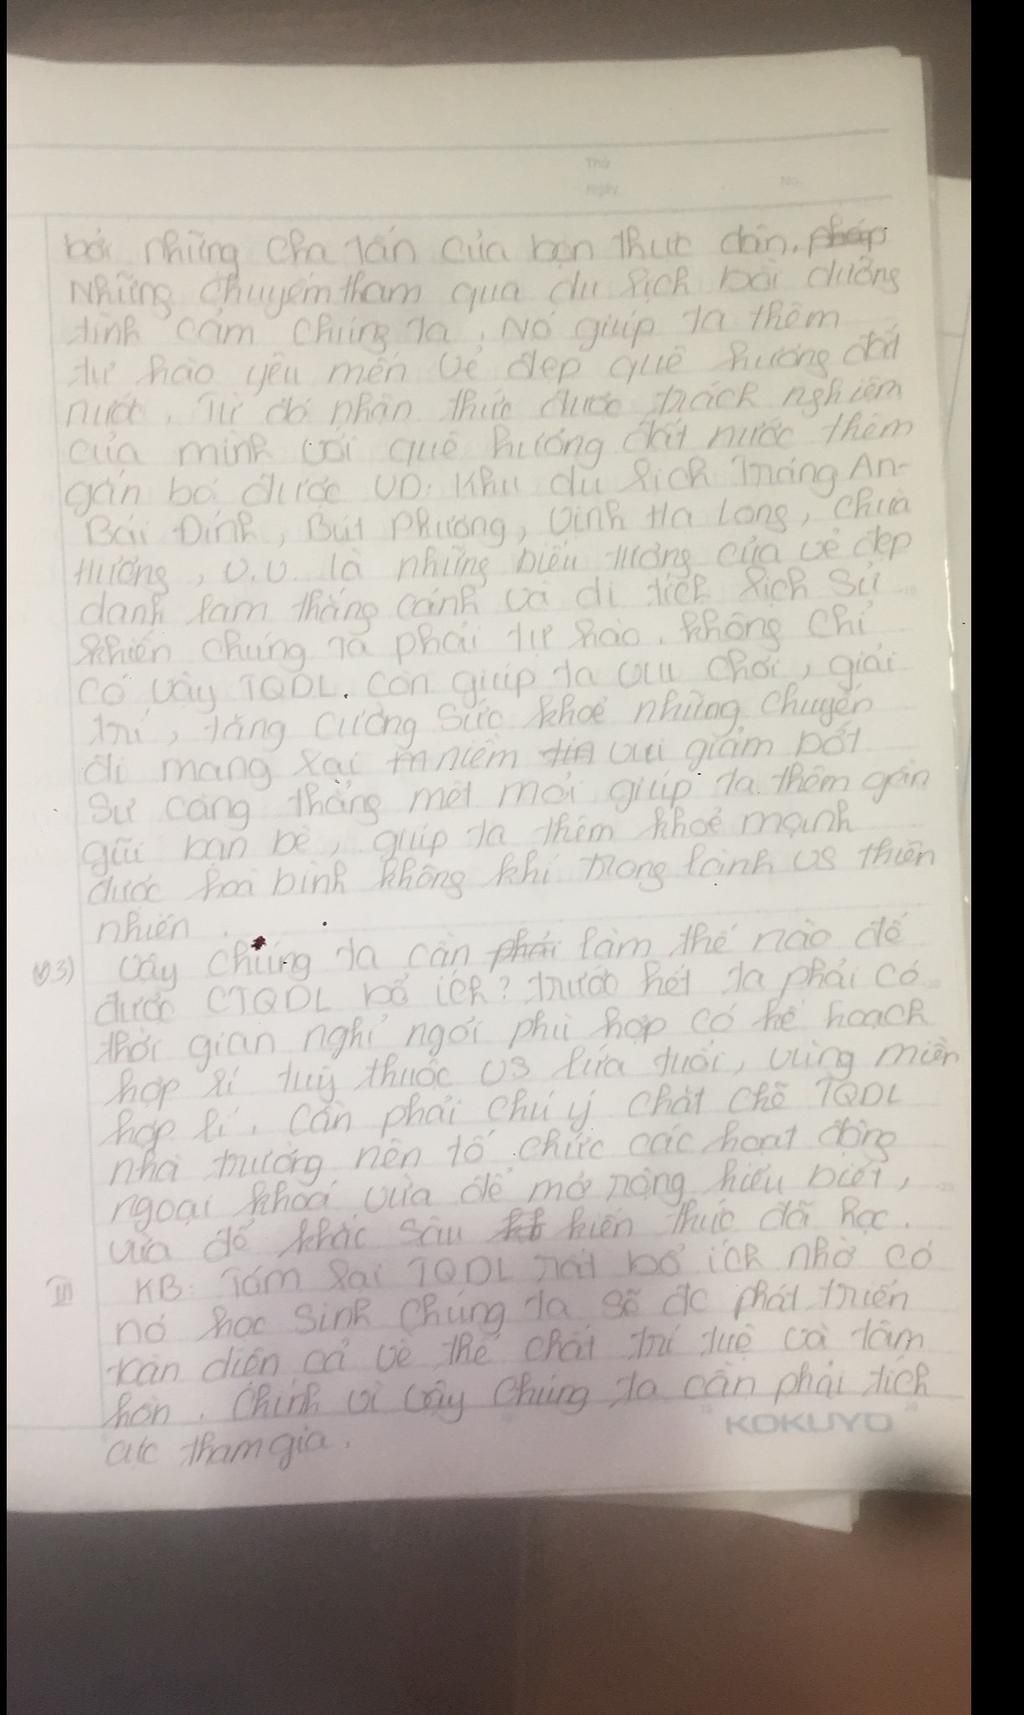 Thứ
Ngày
No.
bởi những tra tấn của bọn thực dân. pháp
Những chuyến tham qua du lịch bồi dưỡng
tình cảm chúng ta. Nó giúp ta thêm
tự hào yêu mến vẻ đẹp quê hương đất
nước. Từ đó nhận thức được trách nghiệm
của mình với quê hương đất nước thêm
gắn bó được VD: Khu du lịch Tràng An-
Bái Đính, Bút Phương, Vịnh Hạ Long, chùa
Hương, v.v. là những biểu tượng của vẻ đẹp
danh lam thắng cảnh và di tích lịch sử
khiến chúng ta phải tự hào. không chỉ
có vậy TQDL. còn giúp ta vui chơi, giải
trí, tăng cường sức khoẻ những chuyến
đi mang lại niềm tin vui giảm bớt
sự căng thẳng mệt mỏi giúp ta thêm gần
gũi bạn bè, giúp ta thêm khoẻ mạnh
được hoà bình không khí trong lành vs thiên
nhiên.
03) Vậy chúng ta cần phải làm thế nào để
được CTQDL bổ ích? trước hết ta phải có
thời gian nghỉ ngơi phù hợp có kế hoạch
hợp lí tuỳ thuộc vs lứa tuổi, vùng miền
hợp lí. Cần phải chú ý chặt chẽ TQDL
nhà trường nên tổ chức các hoạt động
ngoại khoá vừa để mở rộng hiểu biết,
vừa để khắc sâu kiến thức đã học.
III KB: Tóm lại TQDL rất bổ ích nhờ có
nó học sinh chúng ta sẽ đc phát triển
toàn diện cả về thể chất trí tuệ và tâm
hồn. Chính vì vậy chúng ta cần phải tích
cực tham gia.
KOKUYO